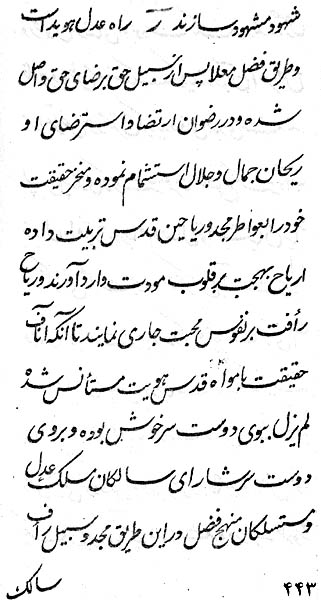 شهود و مشهود سازند زیرا راه عدل هویداست
و طریق فضل معلا پس از سبیل حق برضای حق واصل
شده و در رضوان ارتضا و استرضای او
ریحان جمال و جلال استشمام نموده و منخر حقیقت
خود را بعواطر مجد و ریاحین قدس تربیت داده
اریاح بهجت بر قلوب مودت وارد آورند و ریاح
رأفت بر نفوس محبت جاری نمایند تا آنکه آناف
حقیقت با مواه قدس هویت مستأنس شده
لم یزل ببوی دوست سرخوش بوده و بروی
دوست سرشار ای سالکان مسلک عدل
و مستسلکان منهج فضل در این طریق مجد و سبیل رأف
۴۴۳
سالک